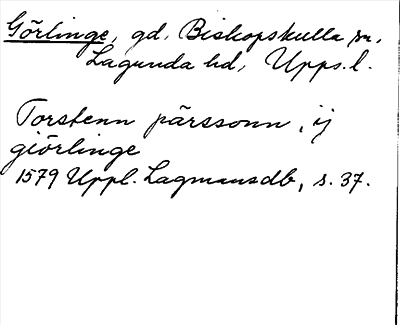 Görlinge, gd, Biskopskulla sn,
Lagunda hd, Upps.l.
Torstenn pärssonn, ij
giörlinge
1579 Uppl. Lagmansdb, s. 37.